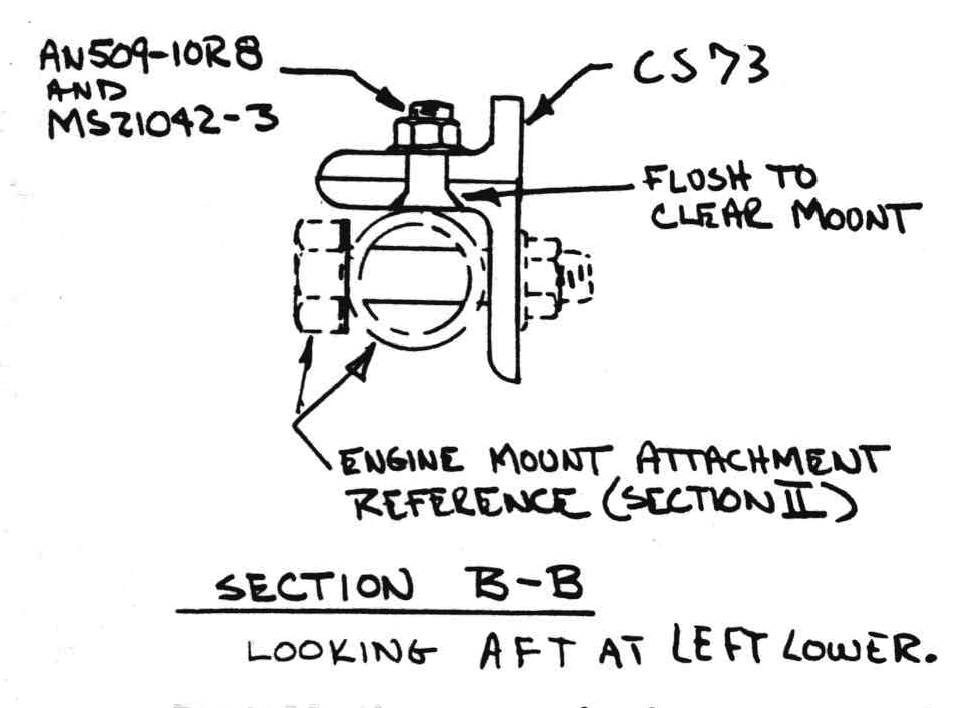 AN509-10R8
AND
MS21042-3
CS73
FLUSH TO
CLEAR MOUNT
ENGINE MOUNT ATTACHMENT
REFERENCE (SECTION II)
SECTION B-B
LOOKING AFT AT LEFT LOWER.